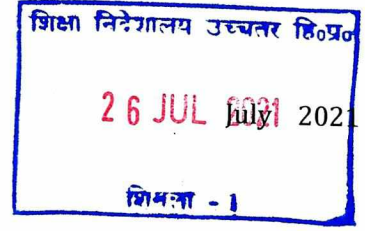 शिक्षा निदेशालय उच्चतर हि०प्र०
26 JUL 2021 July 2021
शिमला - 1